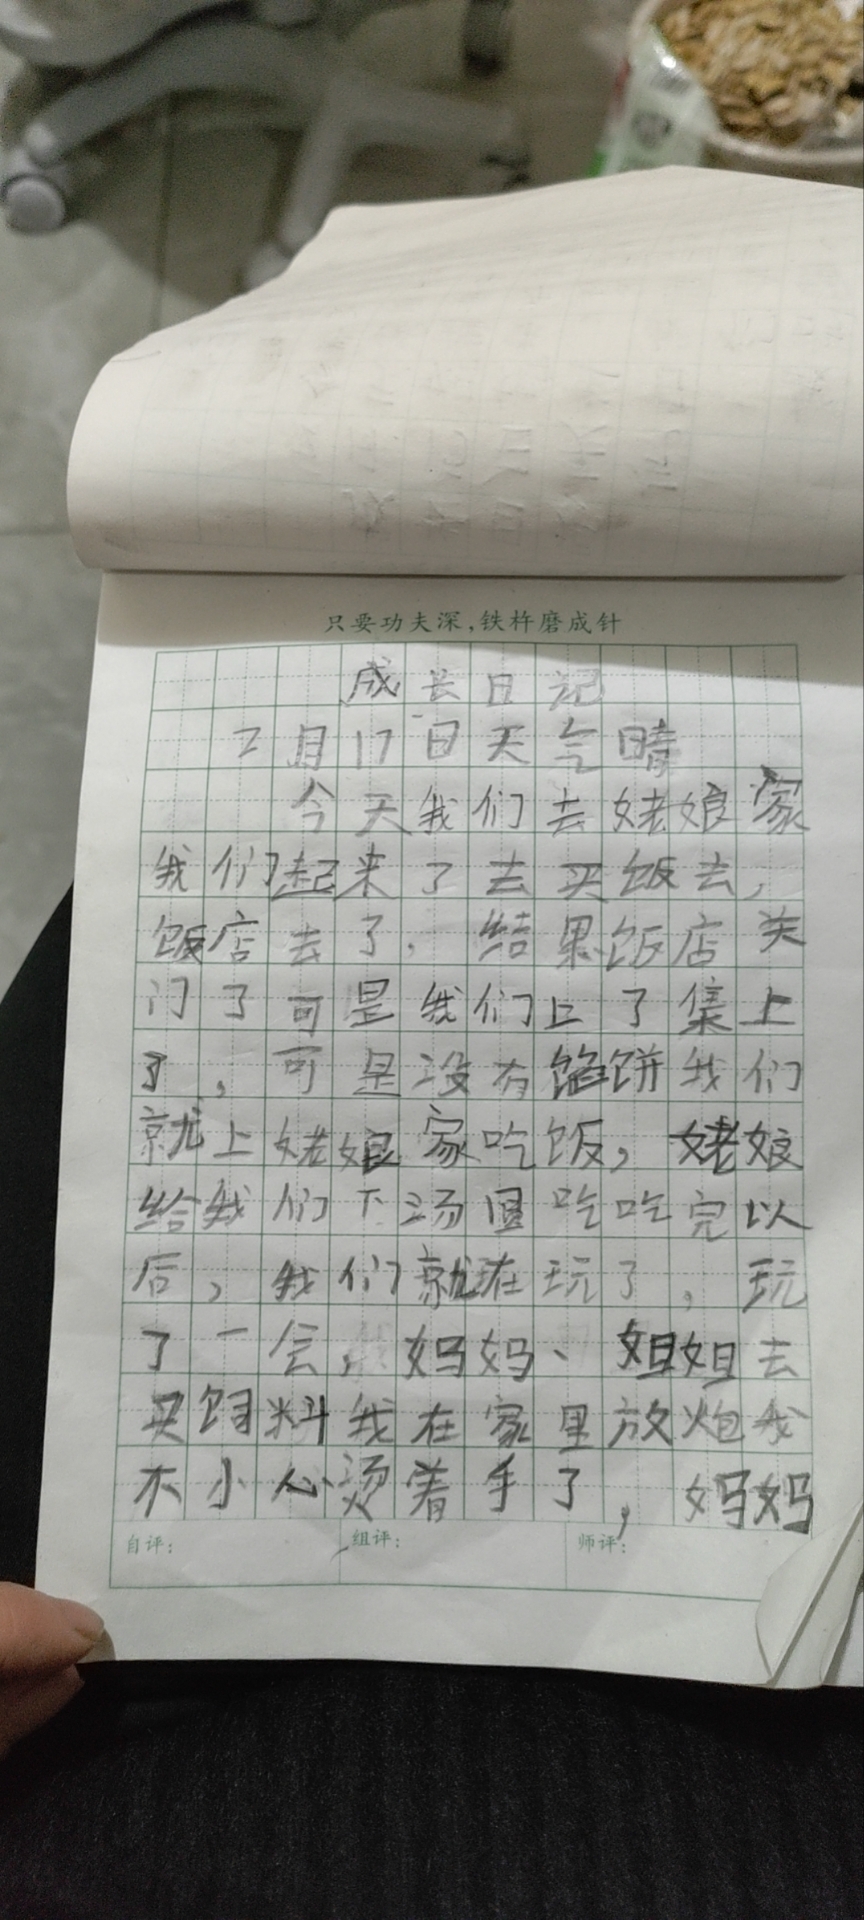 只要功夫深，铁杵磨成针
成长日记
2月17日天气晴
今天我们去姥娘家
我们起来了去买饭去，
饭店去了，结果饭店关
门了可是我们上了集上
了，可是没有馅饼我们
就上姥娘家吃饭，姥娘
给我们下汤圆吃吃完以
后，我们就在玩了，玩
了一会，妈妈、姐姐去
买饲料我在家里放炮我
不小心烫着手了，妈妈
自评： 组评： 师评：